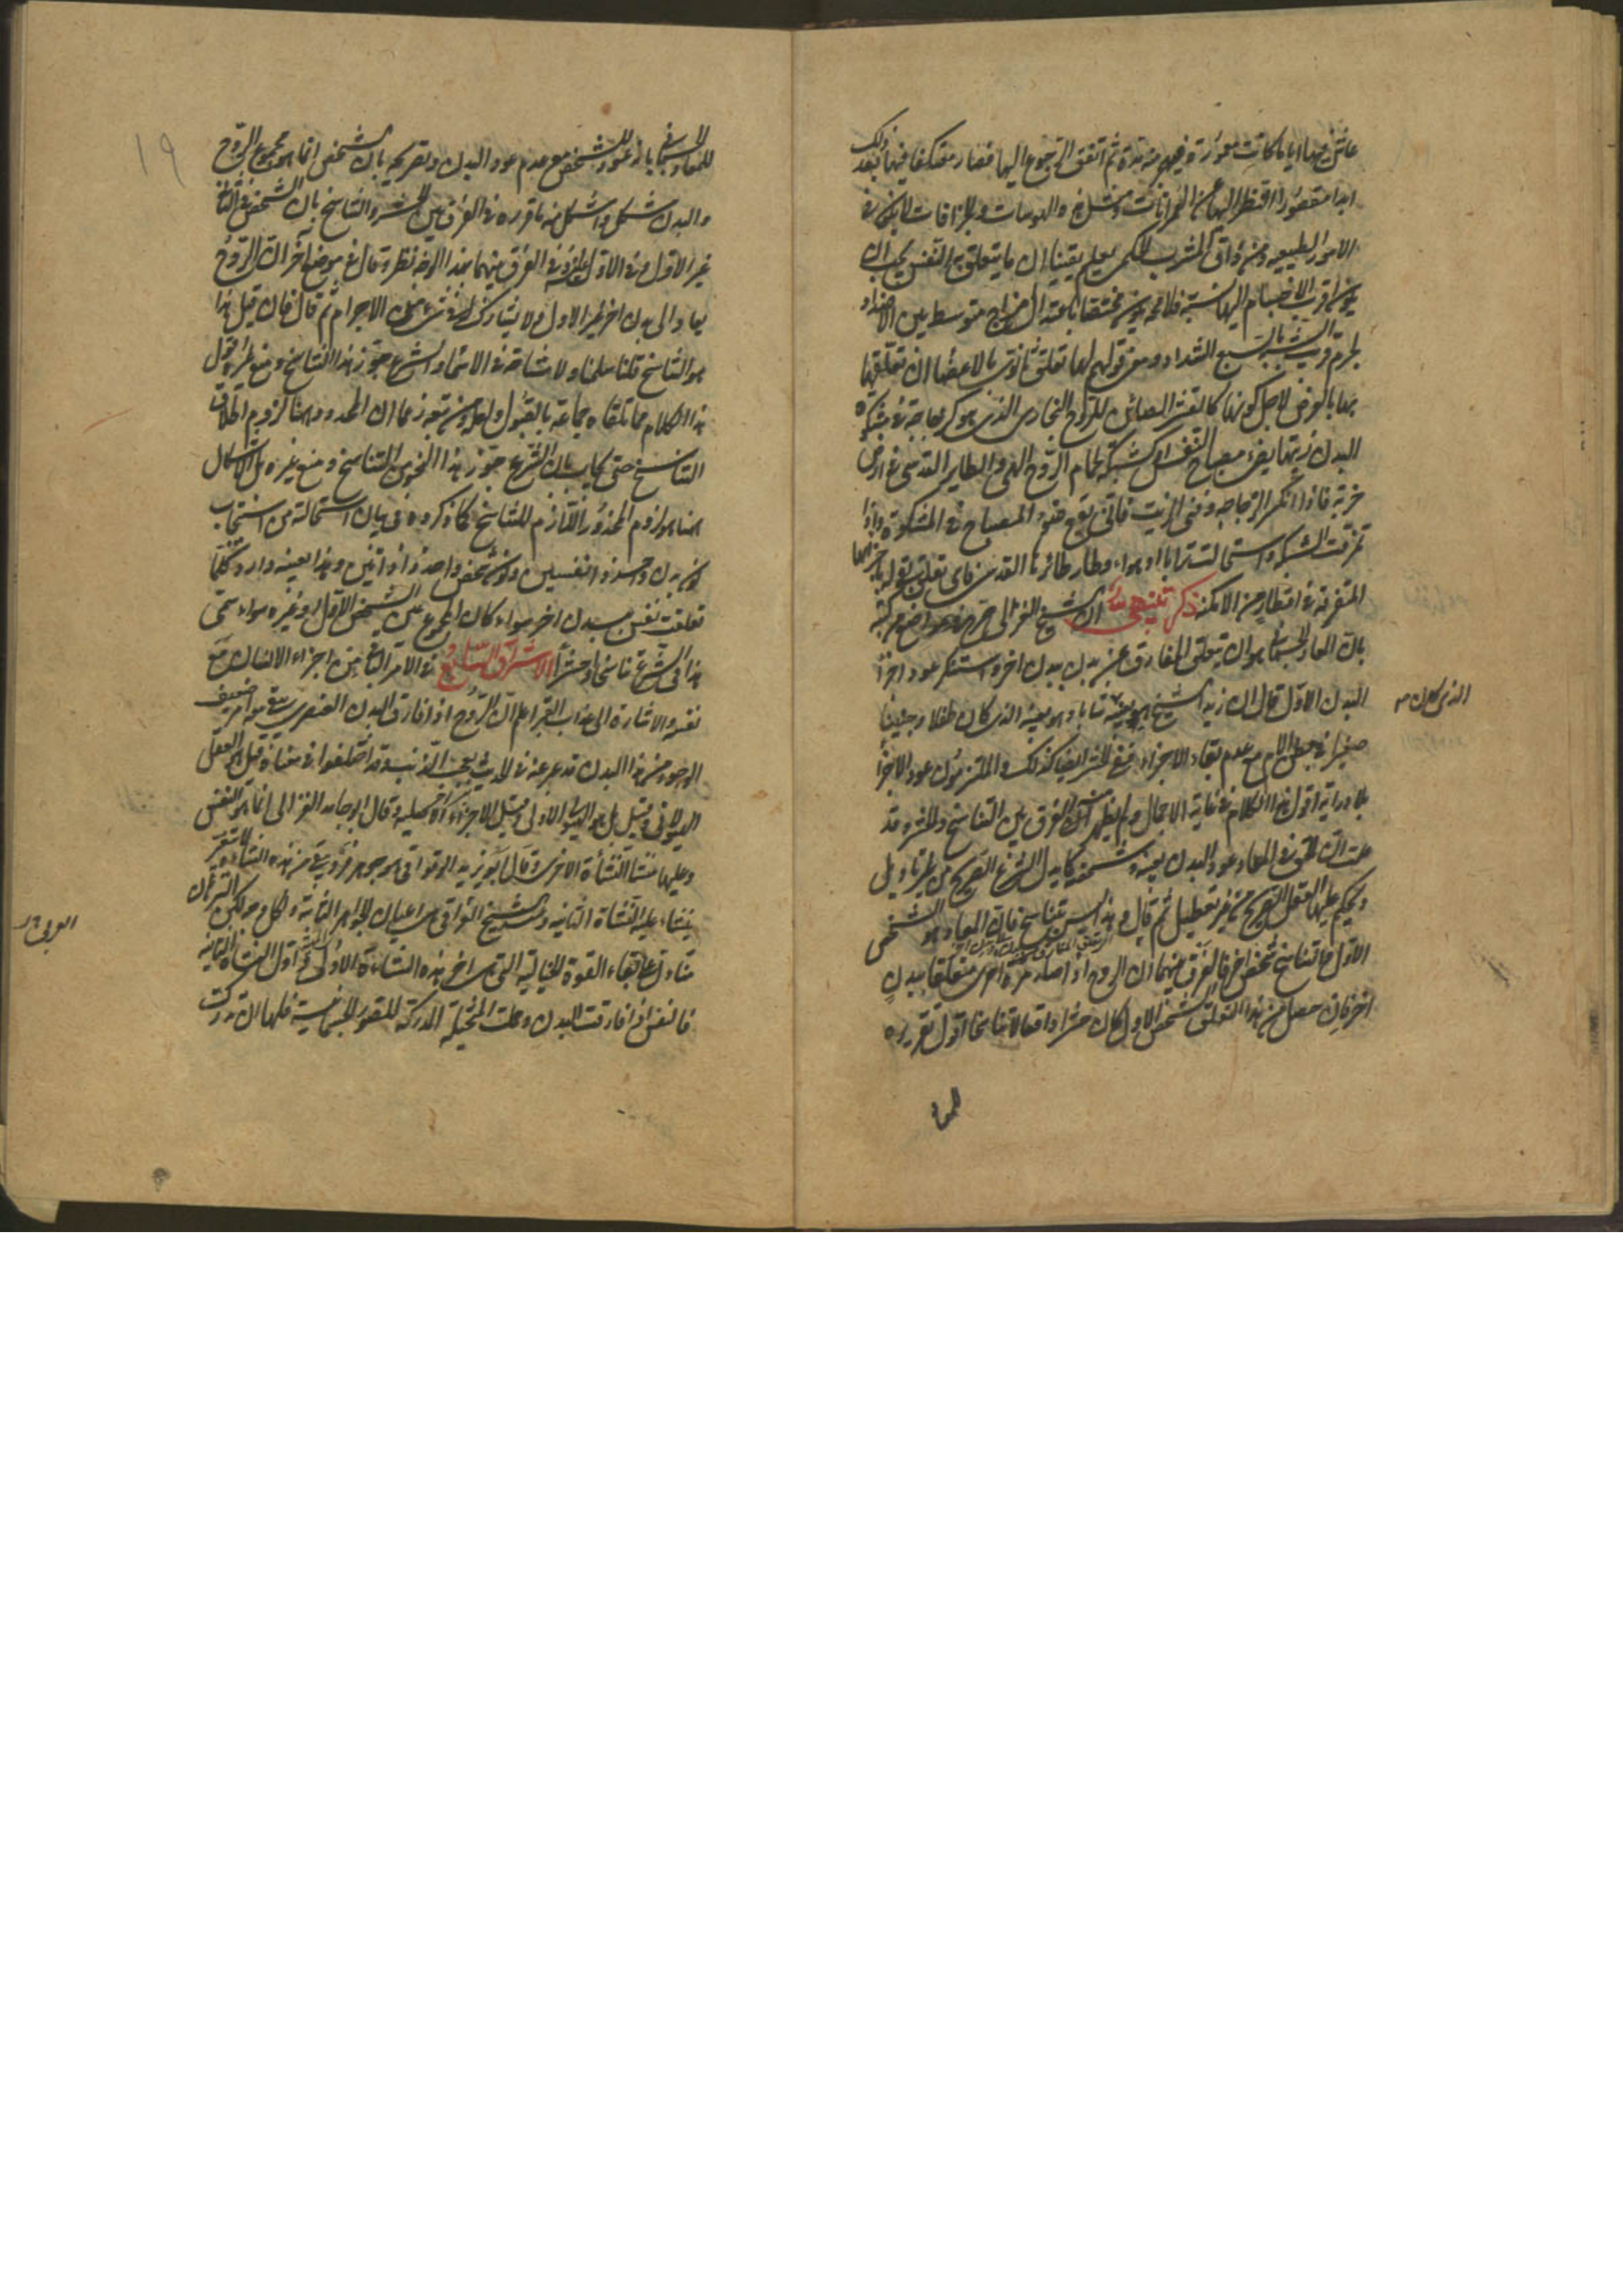 عاش فيها اياما كانت معمورة فيهم مدة ثم اتفق الرجوع اليها فصار معتكفا فيها بعد ذلك
ابدا مقصورا النظر اليها من الخرافات و الهوسات و الجزافات لا يكون في
الامور الطبيعيه ومن ذاق المشرب الحكمى يعلم يقينا ان ما يتعلق به النفس يجب ان
يكون اقرب الاجسام اليها نسبة فلا محه يكون مختصا بمزاج متوسط بين الاضداد
لجرم قريب الشبه بالسبع الشداد ومعنى قولهم لها تعلق ثانوى بالاعضا ان تعلقها
بها بالعرض لاجل كونها كالقشر الصائن للروح البخارى الذى هو كزجاجة فى مشكوة
البدن زيتها يضئ مصباح النفس او كشبكة لحمام الروح الهى والطاير القدسى فى ارض
خربة فاذا انكسر الزجاجه وفنى الزيت فانى يقع ضوء المصباح فى المشكوة واذا
تمزقت الشبكه واستحالت ترابا او هواء وطار طائر القدس فاى تعلق بقوله باجزائها
المتفرقة فى اقطار من الامكنة ذكر تنبيهى ان الشيخ الغزالى صرح فى مواضع من كتبه
بان المعاد الجسمانى هو ان يتعلق المفارق عن بدن ببدن اخر واستنكر عود اجزا
البدن الاول قال ان زيد الشيخ هو بعينه شابا وهو بعينه الذى كان طفلا وجنينا
الذى كان
صغيرا فى بطن الام مع عدم بقاء الاجزاء ففى الحشر ايضا كذلك والملتزمون عود الاجزا
بلا دراية اقول هذا الكلام فى غاية الاجمال ولم يظهر منه الفرق بين التناسخ والحشر وقد
علمت ان الحق فى المعاد عود البدن بعينه وشخصه كما يدل الشرع الصحيح من غير تاويل
ويحكم عليه العقل الصريح من غير تعطيل ثم قال وهذا ليس بتناسخ فان المعاد هو الشخص
الاول والتناسخ شخص اخر فالفرق بينهما ان الروح اذا صار مرة اخرى متعلقا ببدن
اخر فان حصل من هذا التعلق الشخص الاول كان حشرا واقعا لا تناسخا اقول تقريره
للمعاد
١٩
للمعاد الجسمانى بانه عود الشخص مع عدم عود البدن وتصريحه بان الشخص انما هو مجموع الروح
والبدن مشكل واشكل منه ما قرره فى الفرق بين الحشر والتناسخ بان الشخص فى الثانى
غير الاول وفى الاول عينه الفرق بينهما بهذا الوجه نظر وقال فى موضع اخر ان الروح
يعاد الى بدن اخر غير الاول ولا يشارك له فى شئ من الاجرام ثم قال فان قيل هذا
هو التناسخ قلنا سلمنا ولا مشاحة فى الاسماء والشرع جوز هذا التناسخ ومنع غيره اقول
هذا الكلام مما تلقاه جماعة بالقبول ولعلهم من تجوزهما ان المحذور هنا لزوم اطلاق
التناسخ حتى يجاب بان الشرع جوز هذا النحو من التناسخ ومنع غيره بل الاشكال
هنا هو لزوم المحذور اللازم للتناسخ كما ذكروه فى بيان استحالته من استيجاب
كون بدن واحد ذا نفسين وكون شخص واحد ذا ذاتين وهذا بعينه وارد كلما
تعلقت نفس ببدن اخر سواء كان المجموع عين الشخص الاول او غيره سواء سمى
هذا فى الشرع تناسخا او حشرا الاشراق السابع فى الامر الباقى من اجزاء الانسان مع
نفسه والاشارة الى عذاب القبر اعلم ان الروح اذا فارق البدن العنصرى يبقى معه امر ضعيف
الوجود من هذا البدن قد عبر عنه فى الحديث بعجب الذنب وقد اختلفوا فى معناه قيل هو العقل
الهيولانى وقيل بل هو الهيولى الاولى وقيل الاجزاء الاصليه وقال ابو حامد الغزالى انما هو النفس
وعليها تنشأ النشأة الاخرى وقال ابو يزيد الوقواقى هو جوهر فرد يبقى من هذه النشأة لا يتغير
ينشاء عليه النشأة الثانيه وعند الشيخ العراقى هى اعيان الجواهر الثابتة ولكل وجه لكن البرهان
العربى
منا دل على بقاء القوة الخيالية التى هى اخر هذه النشأة الاولى واول النشأة الثانية
فالنفس اذا فارقت البدن وحملت المتخيلة المدركة للصور الجسمانية فلها ان تدرك